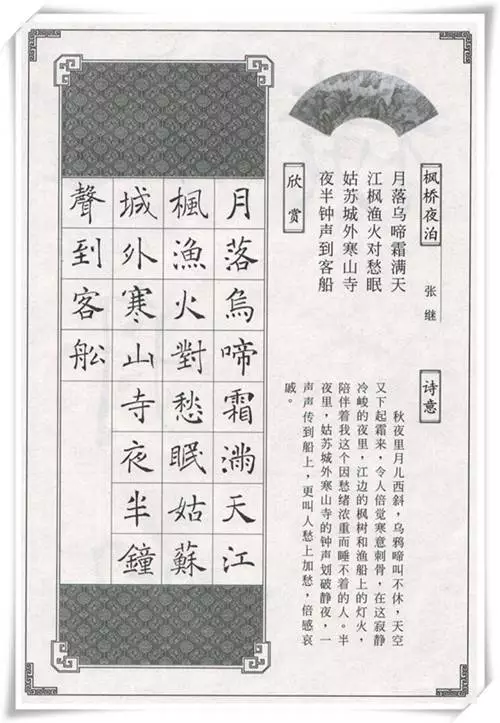 枫桥夜泊
张继
月落乌啼霜满天
江枫渔火对愁眠
姑苏城外寒山寺
夜半钟声到客船
诗意
秋夜里月儿西斜，乌鸦啼叫不休，天空
又下起霜来，令人倍觉寒意刺骨，在这寂静
冷峻的夜里，江边的枫树和渔船上的灯火，
陪伴着我这个因愁绪浓重而睡不着的人。半
夜里，姑苏城外寒山寺的钟声划破静夜，一
声声传到船上，更叫人愁上加愁，倍感哀
戚。
欣赏
月落烏啼霜滿天江
楓漁火對愁眠姑蘇
城外寒山寺夜半鐘
聲到客舩